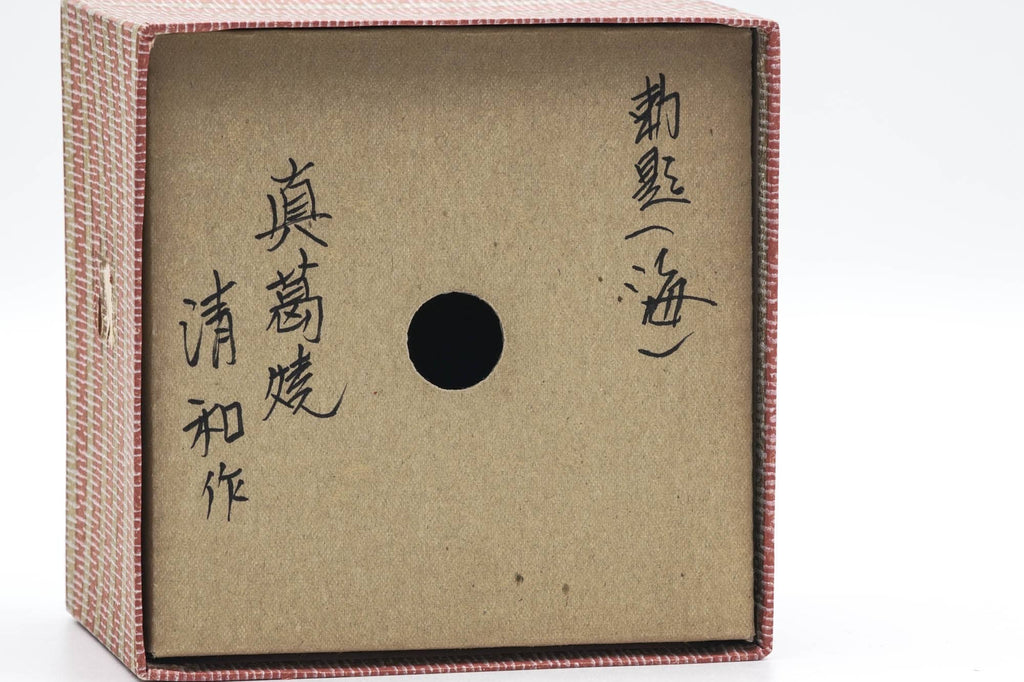 勅題(海)
真葛焼
清和作